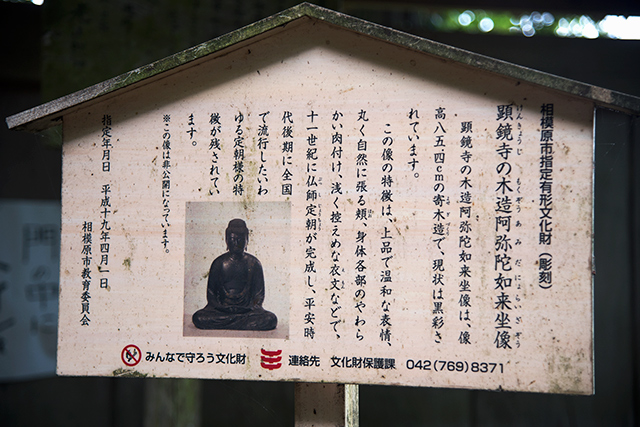 相模原市指定有形文化財（彫刻）
けんきょうじ もくぞう あ み だ にょらい ざ ぞう
顕鏡寺の木造阿弥陀如来坐像
顕鏡寺の木造阿弥陀如来坐像は、像
高八五．四㎝の寄木造で、現状は黒彩さ
れています。
この像の特徴は、上品で温和な表情、
丸く自然に張る頬、身体各部のやわら
かい肉付け、浅く控えめな衣文などで、
十一世紀に仏師定朝が完成し、平安時
代後期に全国
で流行したいわ
ゆる定朝様の特
徴が残されてい
ます。
※この像は非公開になっています。
指定年月日　平成十九年四月一日
相模原市教育委員会
みんなで守ろう文化財
連絡先　文化財保護課　042(769)8371